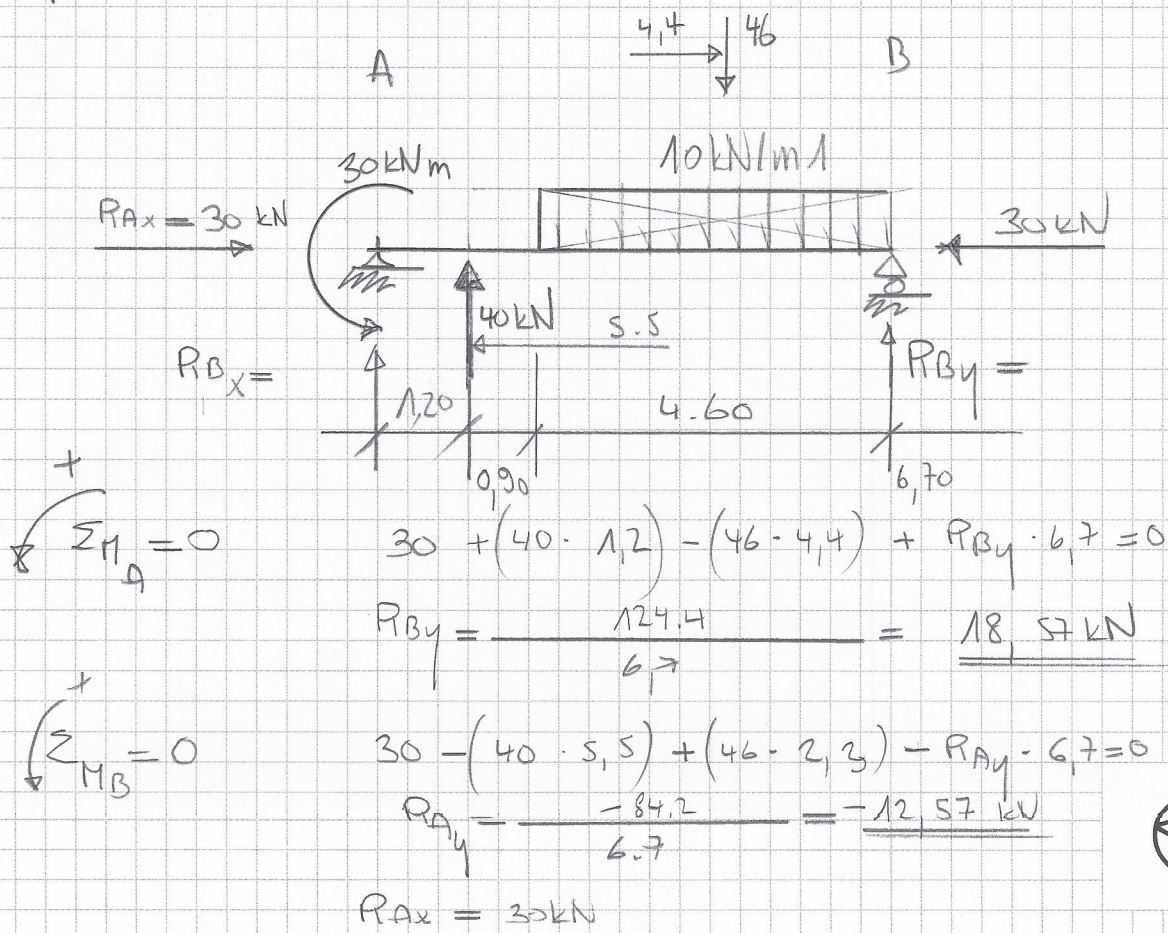 4,4 46
A B
30kNm 10kN/m1
RAx = 30 kN 30kN
40kN 5.5
RBx= RBy =
1,20 4.60
0,90 6,70
+
ΣMA = 0 30 + (40 · 1,2) - (46 · 4,4) + RBy · 6,7 = 0
RBy = 124.4 / 6,7 = 18,57 kN
+
ΣMB = 0 30 - (40 · 5,5) + (46 · 2,3) - RAy · 6,7 = 0
RAy = -84.2 / 6.7 = -12,57 kN
RAx = 30kN